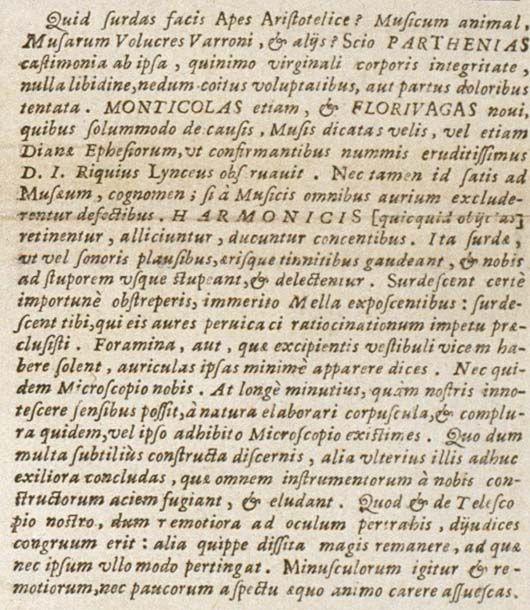 Quid surdas facis Apes Aristotelice? Musicum animal,
Musarum Volucres Varroni, & alijs? Scio PARTHENIAS
castimonia ab ipsa, quinimo virginali corporis integritate,
nulla libidine, nedum coitus voluptatibus, aut partus doloribus
tentata. MONTICOLAS etiam, & FLORIVAGAS noui,
quibus solummodo de causis, Musis dicatas velis, vel etiam
Dianæ Ephesiorum, vt confirmantibus nummis eruditissimus
D. I. Riquius Lynceus obseruauit. Nec tamen id satis ad
Musæum, cognomen; si à Musicis omnibus aurium exclude-
rentur defectibus. HARMONICIS [quicquid obijcias]
retinentur, alliciuntur, ducuntur concentibus. Ita surdæ,
vt vel sonoris plausibus, ærisque tinnitibus gaudeant, & nobis
ad stuporem vsque stupeant, & delectentur. Surdescent certè
importunè obstreperis, immerito Mella exposcentibus: surde-
scent tibi, qui eis aures peruicaci ratiocinationum impetu præ-
clusisti. Foramina, aut, quæ excipientis vestibuli vicem ha-
bere solent, auriculas ipsas minimè apparere dices. Nec qui-
dem Microscopio nobis. At longè minutius, quàm nostris inno-
tescere sensibus possit, à natura elaborari corpuscula, & complu-
ra quidem, vel ipso adhibito Microscopio existimes. Quo dum
multa subtiliùs constructa discernis, alia vlterius illis adhuc
exiliora concludas, quæ omnem instrumentorum à nobis con-
structorum aciem fugiant, & eludant. Quod & de Telesco
pio nostro, dum remotiora ad oculum pertrahis, dijudices
congruum erit: alia quippe dissita magis remanere, ad quæ
nec ipsum vllo modo pertingat. Minusculorum igitur & re-
motiorum, nec paucorum aspectu æquo animo carere assuescas.